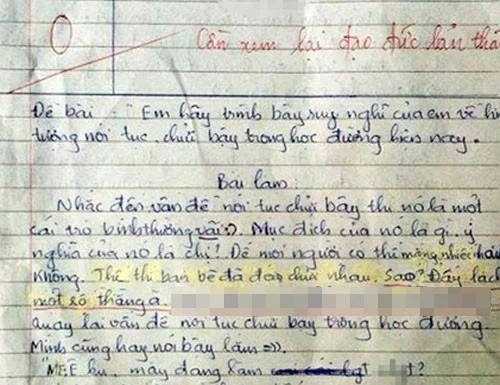 0
Cần xem lại đạo đức bản thâ
Đề bài: "Em hãy trình bày suy nghĩ của em về hi
tượng nói tục chửi bậy trong học đường hiện nay.
Bài làm
Nhắc đến vấn đề nói tục chửi bậy thì nó là một
cái trò bình thường vãi :). Mục đích của nó là gì, ý
nghĩa của nó là chi? Để mọi người có thể mắng nhiếc hay
không. Thế thì bạn bè đã đảo chửi nhau. Sao? Đấy là c
một số thằng a.
quay lại vấn đề nói tục chửi bậy trong học đường
Mình cũng hay nói bậy lắm =)).
"MẸ E ku, mày đang làm